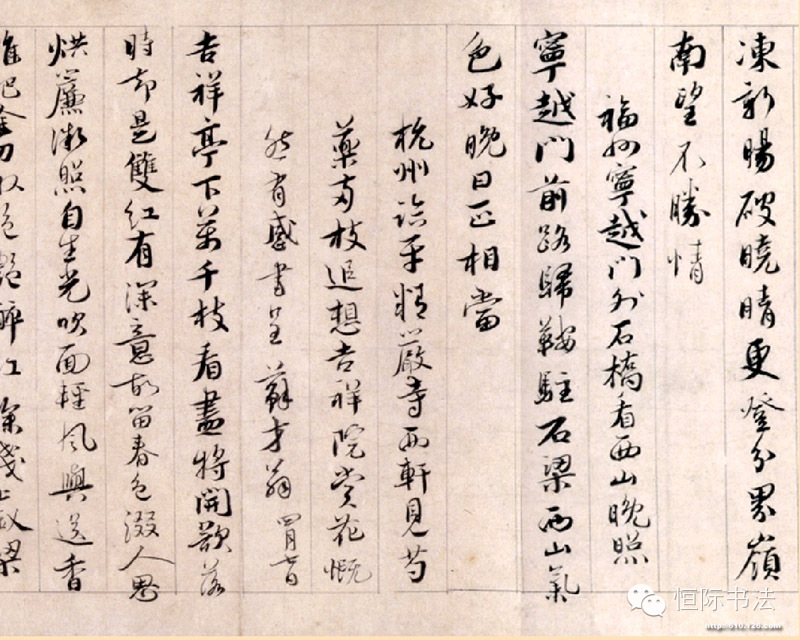 凍新暘破曉晴更登分界嶺
南望不勝情
福州寧越門外石橋看西山晚照
寧越門前路歸鞍駐石梁西山氣
色好晚日正相當
杭州臨平精嚴寺西軒見芍
藥兩枝追想吉祥院賞花慨
然有感書呈蘇才翁
吉祥亭下萬千枝看盡將開欲落
時却是雙紅有深意故留春色綴人思
烘簾微照自生光吹面輕風與送香
金刀收絕艷醉紅深淺上釵梁
恒际书法